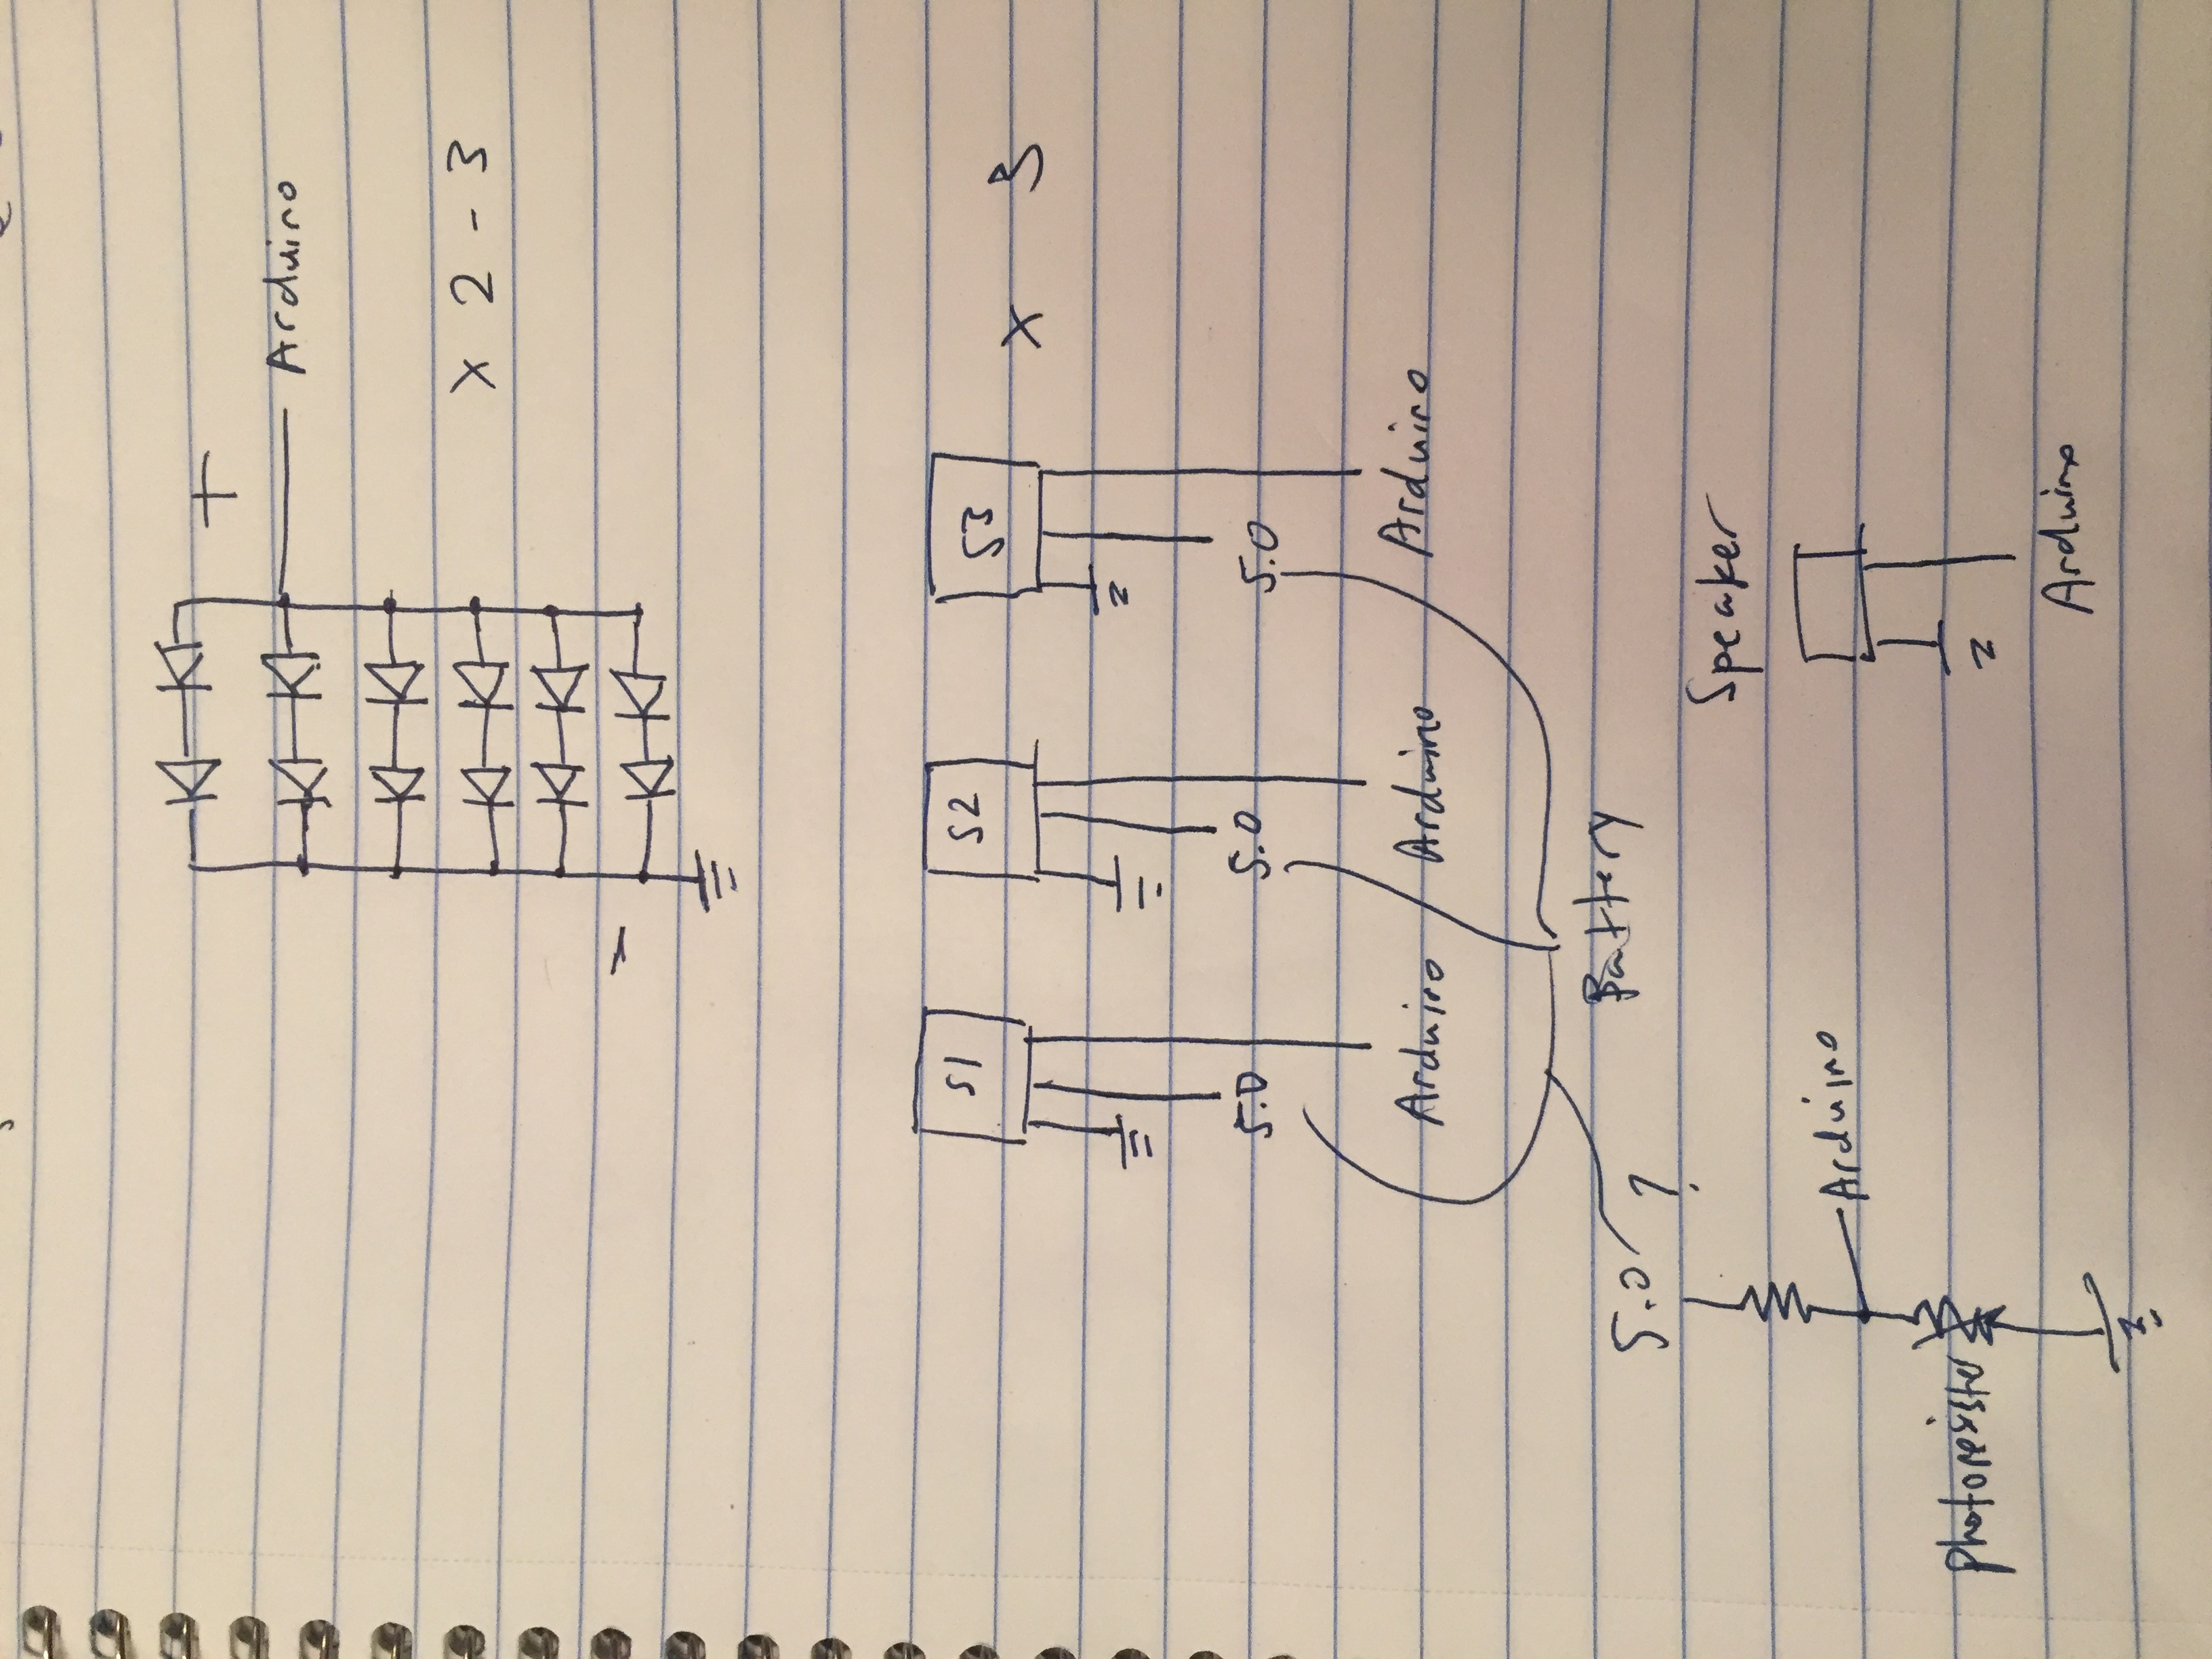 +
Arduino
x 2 - 3
S1 S2 S3 x 3
5.0 5.0 5.0
Arduino Arduino Arduino
Battery
5.0 ?
Speaker
Arduino
photoresister
Arduino